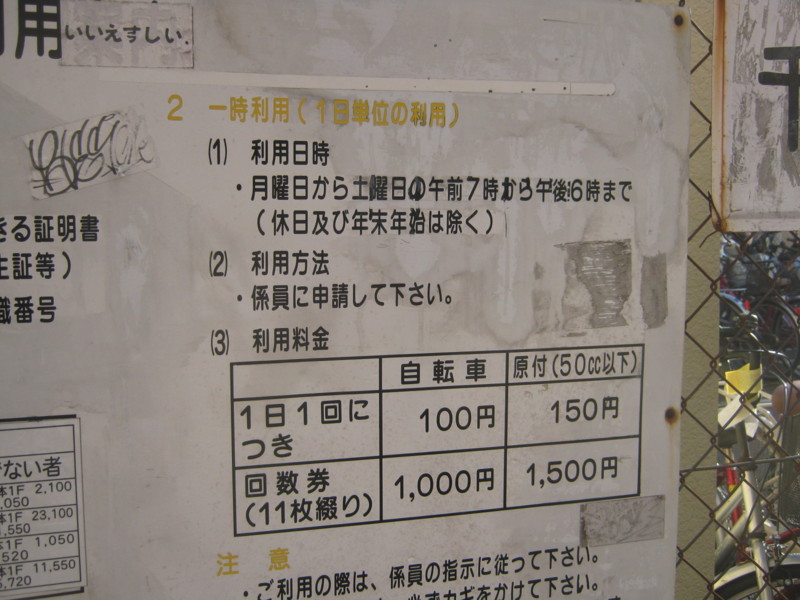 用
いいえすしい.
2 一時利用(1日単位の利用)
(1) 利用日時
・月曜日から土曜日の午前7時から午後6時まで
(休日及び年末年始は除く)
(2) 利用方法
・係員に申請して下さい。
(3) 利用料金
自転車 原付(50cc以下)
1日1回に
つき
100円 150円
回数券
(11枚綴り)
1,000円 1,500円
注意
・ご利用の際は、係員の指示に従って下さい。
カギをかけて下さい。
きる証明書
生証等)
識番号
ない者
1F 2,100
,050
1F 23,100
,550
1F 1,050
520
1F 11,550
,720